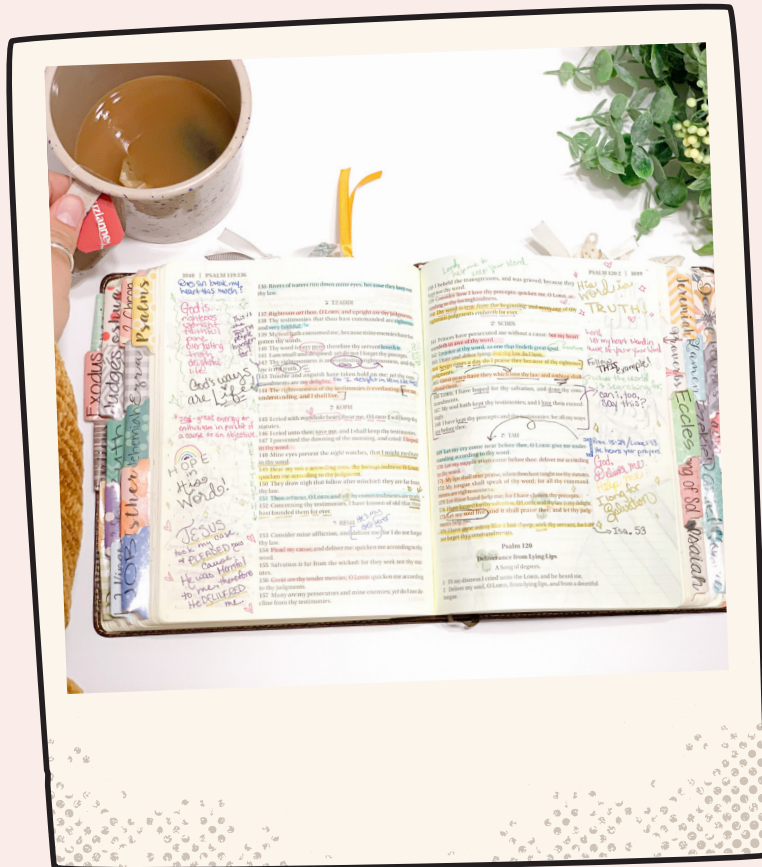 uzianne
1048 | PSALM 119:136
PSALM 120:2 | 1049
Does sin break my
heart this much?
God is
righteous
upright
faithful
pure
everlasting
truth
delightful
Life!
God's ways
are Life!
zeal - great energy or
enthusiasm in pursuit of
a cause or an objective
HOPE
in
His
Word!
JESUS
took my case,
& PLEADED my
cause.
He was Merciful
to me, therefore
He DELIVERED
me.
Exodus
Judges
Joshua
2 Chron
Psalms
Ezra
Ruth
Nehemiah
Esther
JOB
136 Rivers of waters run down mine eyes, because they keep not
thy law.
TZADDI
137 Righteous art thou, O LORD, and upright are thy judgments.
138 The testimonies that thou hast commanded are righteous
and very faithful.
139 My zeal hath consumed me, because mine enemies have for-
gotten thy words.
140 Thy word is very pure: therefore thy servant loveth it.
141 I am small and despised: yet do not I forget thy precepts.
142 Thy righteousness is an everlasting righteousness, and thy
law is the truth.
143 Trouble and anguish have taken hold on me: yet thy com-
mandments are my delights.
144 The righteousness of thy testimonies is everlasting: give me
understanding, and I shall live.
KOPH
145 I cried with my whole heart; hear me, O LORD: I will keep thy
statutes.
146 I cried unto thee; save me, and I shall keep thy testimonies.
147 I prevented the dawning of the morning, and cried: I hoped
in thy word.
148 Mine eyes prevent the night watches, that I might meditate
in thy word.
149 Hear my voice according unto thy lovingkindness: O LORD,
quicken me according to thy judgment.
150 They draw nigh that follow after mischief: they are far from
thy law.
151 Thou art near, O LORD; and all thy commandments are truth.
152 Concerning thy testimonies, I have known of old that thou
hast founded them for ever.
RESH
153 Consider mine affliction, and deliver me: for I do not forget
thy law.
154 Plead my cause, and deliver me: quicken me according to thy
word.
155 Salvation is far from the wicked: for they seek not thy stat-
utes.
156 Great are thy tender mercies, O LORD: quicken me according
to thy judgments.
157 Many are my persecutors and mine enemies; yet do I not de-
cline from thy testimonies.
158 I beheld the transgressors, and was grieved; because they
kept not thy word.
159 Consider how I love thy precepts: quicken me, O LORD, ac-
cording to thy lovingkindness.
160 Thy word is true from the beginning: and every one of thy
righteous judgments endureth for ever.
SCHIN
161 Princes have persecuted me without a cause: but my heart
standeth in awe of thy word.
162 I rejoice at thy word, as one that findeth great spoil.
163 I hate and abhor lying: but thy law do I love.
164 Seven times a day do I praise thee because of thy righteous
judgments.
165 Great peace have they which love thy law: and nothing shall
offend them.
166 LORD, I have hoped for thy salvation, and done thy com-
mandments.
167 My soul hath kept thy testimonies; and I love them exceed-
ingly.
168 I have kept thy precepts and thy testimonies: for all my ways
are before thee.
TAU
169 Let my cry come near before thee, O LORD: give me under-
standing according to thy word.
170 Let my supplication come before thee: deliver me according
to thy word.
171 My lips shall utter praise, when thou hast taught me thy statutes.
172 My tongue shall speak of thy word: for all thy command-
ments are righteousness.
173 Let thine hand help me; for I have chosen thy precepts.
174 I have longed for thy salvation, O LORD; and thy law is my delight.
175 Let my soul live, and it shall praise thee; and let thy judg-
ments help me.
176 I have gone astray like a lost sheep; seek thy servant; for I do
not forget thy commandments.
Psalm 120
Deliverance from Lying Lips
A Song of degrees.
1 In my distress I cried unto the LORD, and he heard me.
2 Deliver my soul, O LORD, from lying lips, and from a deceitful
tongue.
His
Word is
TRUTH!
Lord,
let my heart stand in
awe of your Word
Follow
THIS Example!
Can I, too,
say this?
God,
I long for
Salvation
Isa. 53
Jeremiah
Proverbs
Eccles
Song of Sol
Isaiah